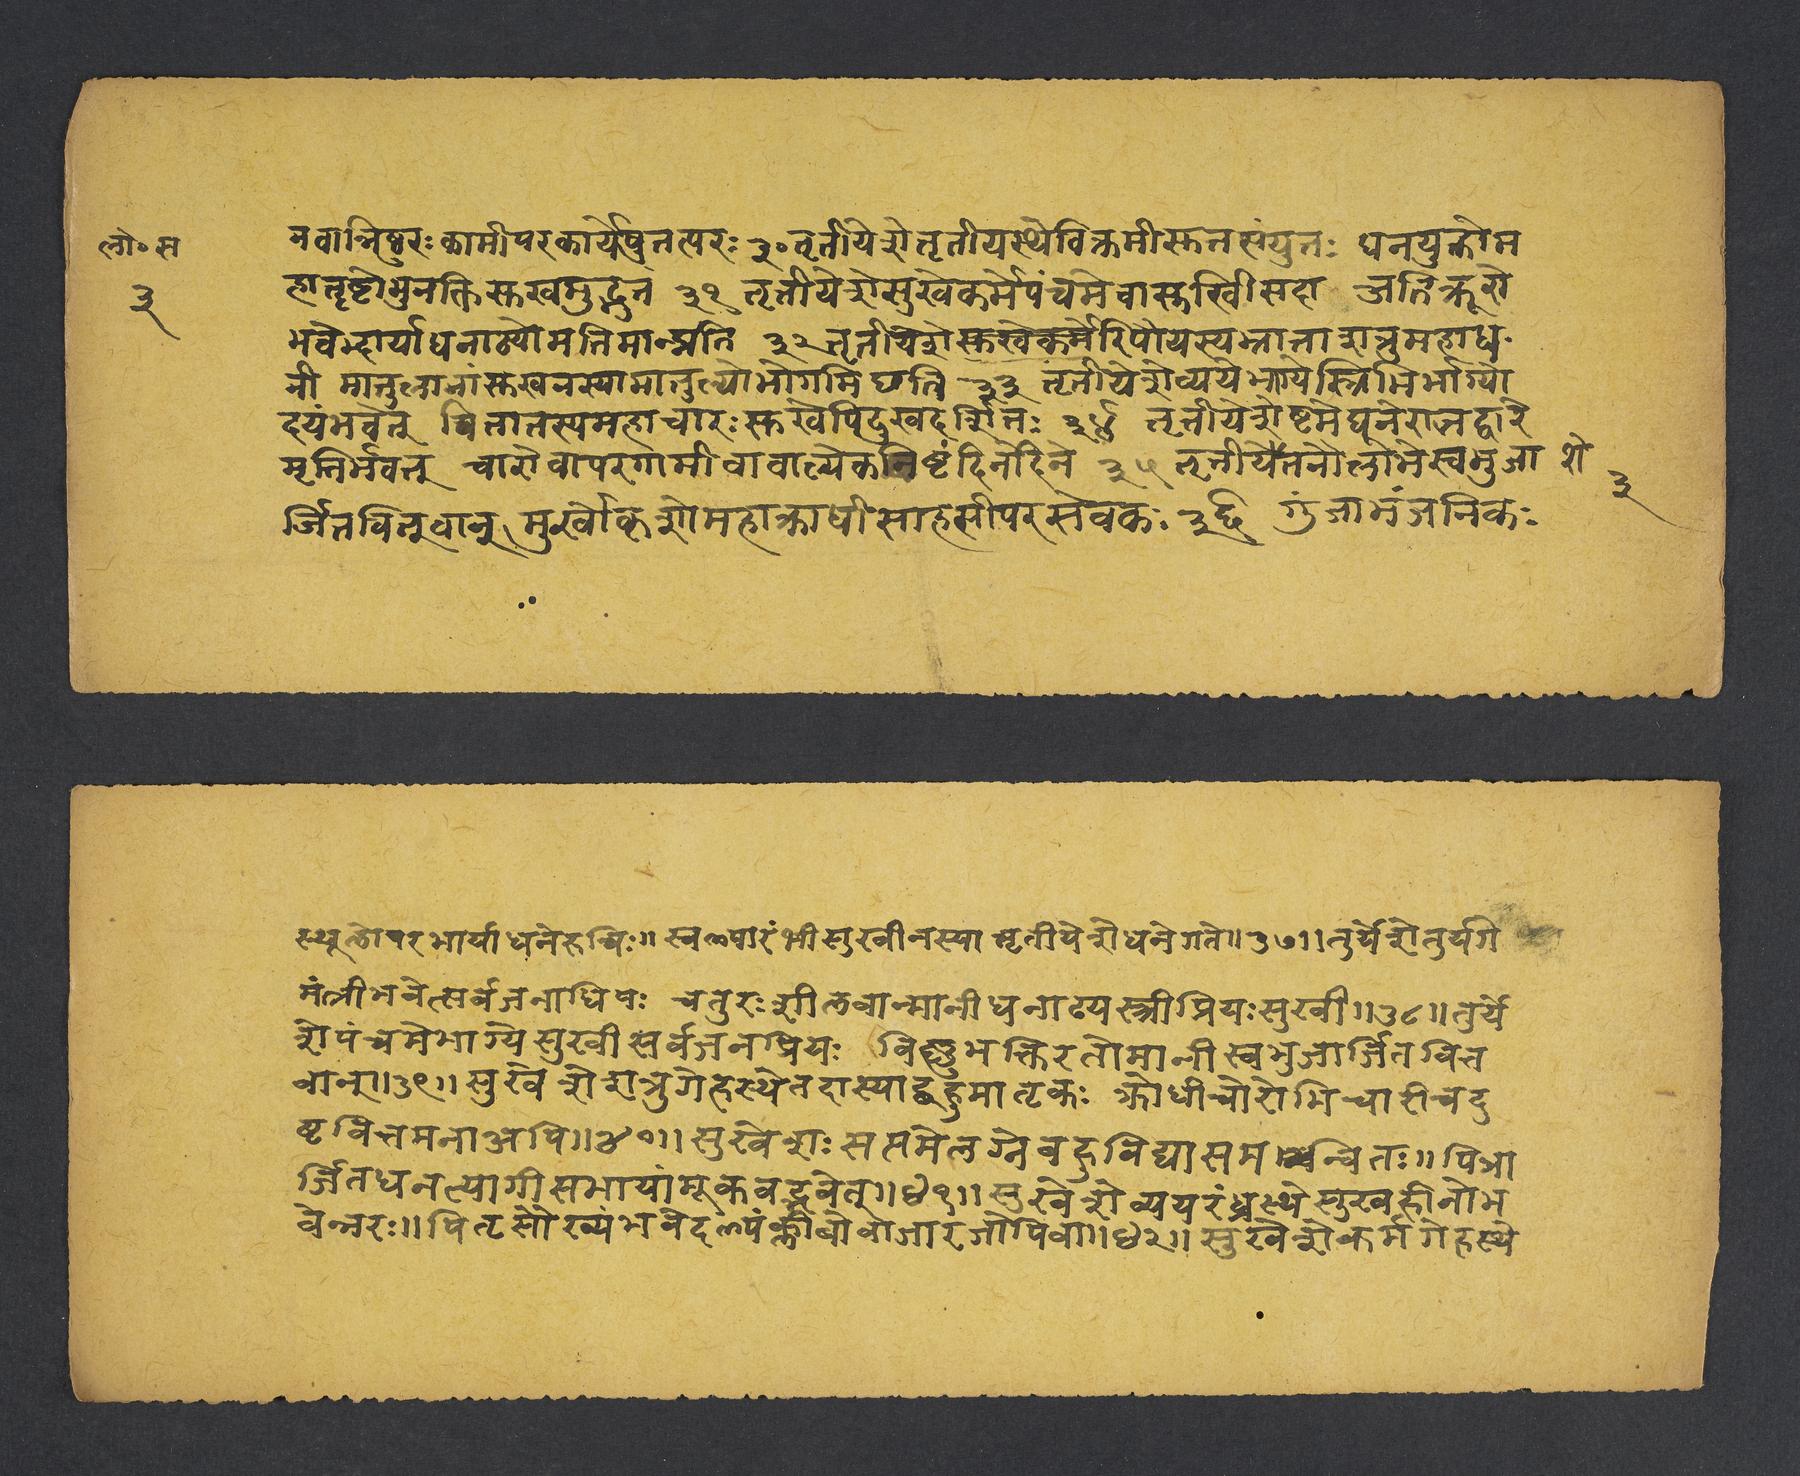 लो॰स
३
नवान्निष्ठुरः कामीपरकार्येषुतत्परः ३० तृतीयेशेतृतीयस्थेविक्रमीसुतसंयुतः धनयुक्तोम
हातृष्टोभुनक्तिसुखमुद्भुतं ३१ तृतीयेशेसुखेकर्मेपंचमेवासुखिीसदा अतिक्रूरो
भवेद्भार्याधनाढ्योमतिमान्प्रति ३२ तृतीयेशेसुखेकर्मेरिपौयस्यभ्रातारात्रुमहाध
नी मातुलानांसुखंनस्यामातुल्योभोगमिछति ३३ तृतीयेशेव्ययेभाग्येस्त्रिभिर्भाग्यो
दयंभवेत् पितातस्यमहाचारः सुखेपिदुखदर्शितः ३४ तृतीयेशेष्टमेद्यूनेराजद्वारे
मृतिर्भवेत् चारोवापरगामीवावाल्येकनिष्टंदिनेदिने ३५ तृतीयेतनौलाभेस्वभुजा शे
र्जितवित्तवान् मुर्खोकृशोमहाक्रोधीसाहसीपरसेवकः ३६ गुंजाभंजनिकः
३
स्थूलोपरभार्याधनेरुचिः॥ स्वल्पारंभीसुखीनस्या त्तृतीयेशेधनेगते॥३७॥ तुर्येशेतुर्यगे
मंत्रीभवेत्सर्वजनाधिपः चतुरःशीलवान्मानीधनाढ्यस्त्रीप्रियःसुखी॥३८॥ तुर्ये
शेपंचमेभाग्येसुखीसर्वजनप्रियः विष्णुभक्तिरतोमानीस्वभुजार्जितवित्त
वान्॥३९॥ सुखेशेशत्रुगेहस्थेतदास्याद्बहुमातृकः क्रोधीचोरोभिचारीचदु
ष्टचित्तमनाअपि॥४०॥ सुखेशः सप्तमेलग्नेबहुविद्यासमन्वितः॥ पित्रा
र्जितधनत्यागीसभायांमूकवद्भवेत्॥४१॥ सुखेशेव्ययरंध्रस्थेसुखहीनोभ
वेन्नरः॥ पितृसौख्यंभवेदल्पंक्लीबोवाजारजोपिवा॥४२॥ सुखेशेकर्मगेहस्थे